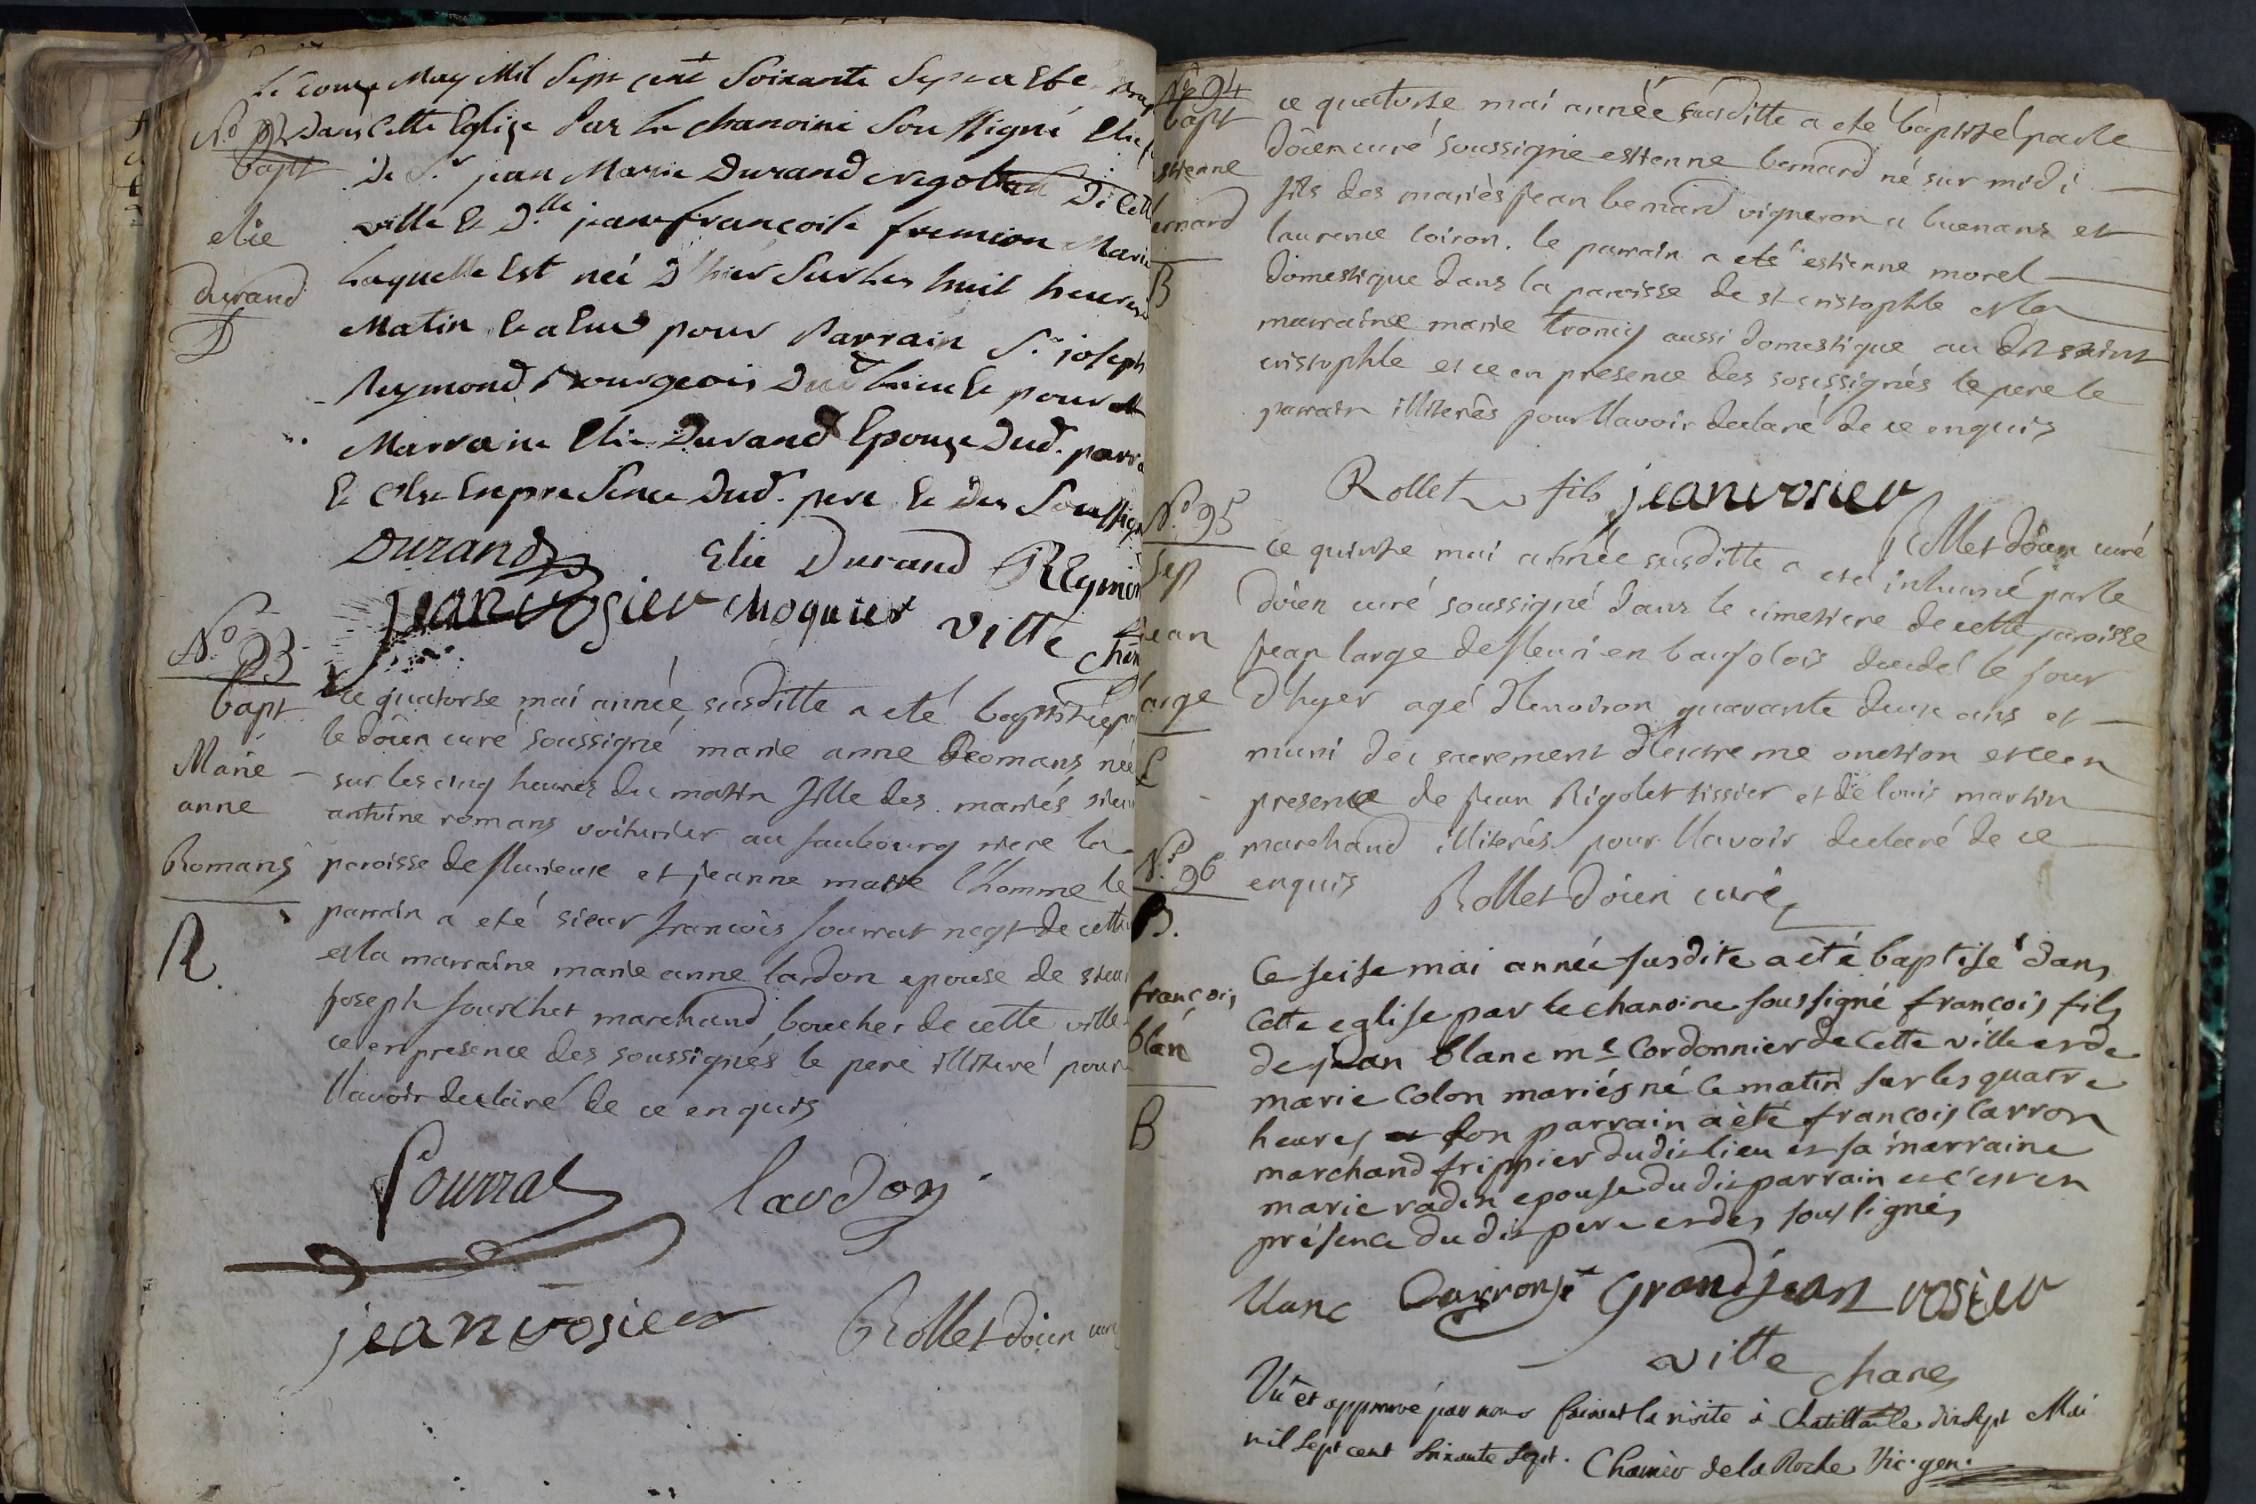 Le onze May Mil Sept cent Soixante Sept a Ete
No 92 dans Cette Eglize Par Le chanoine Soussigné Elie
bapt
De Sr jean Marie Durand negotiant De Cette
elie
ville & Dlle jeanne françoise fremion Mariés
durand
Laquelle Est née D'hier Sur Les huit heures
D
Matin Et a Eue pour Parrain Sr joseph
Reymond Bourgeois Dud Lieu Et pour
Marraine Elie Durand Epouze Dud. parrain
Et C'est En presence Dud. pere Et Des Soussignés
Durand Elie Durand Reymond
jeanvosier choquier Vitte
No 93
bapt
Marie
anne
Romans
R.
ce quatorse mai année susditte a eté baptisée par
le doïen curé soussigné marie anne Romans née
sur les cinq heures du matin fille des mariés sieur
antoine romans voiturier au faubourg riere la
paroisse de flurieux et jeanne marie l'homme le
parrain a eté sieur francois pourrat negt de cette
et la marraine marie anne lardon epouse de sieur
joseph fourchet marchand boucher de cette ville
ce en presence des soussignés le pere illiteré pour
l'avoir declaré de ce enquis
Pourrat lardon
jeanvosier Rollet doïen curé
No 94
bapt
estienne
bernard
B
ce quatorse mai année susditte a eté baptisé par le
doïen curé soussigné estienne bernard né sur midi
fils des mariès jean bernard vigneron a buenans et
laurence loiron. le parrain a eté estienne morel
domestique dans la paroisse de st cristophle et la
marraine marie troncy aussi domestique au dit saint
cristophle et ce en presence des soussignés le pere le
parrain illiterés pour l'avoir declaré de ce enquis
Rollet fils jeanvosier
Rollet doïen curé
No 95
Sep
jean
large
L
ce quinse mai année susditte a eté inhumé par le
doïen curé soussigné dans le cimetiere de cette paroisse
jean large de fleuri en baujolois decedé le jour
d'hyer agé d'environ quarante deux ans et
muni du sacrement d'extreme onction et ce en
presence de jean Rigolet tissier et de louis martin
marchand illiterés pour l'avoir declaré de ce
enquis Rollet doïen curé
No 96
B.
françois
blan
B
Ce seise mai année susdite a èté baptisé dans
cette eglise par le chanoine soussigné françois fils
de jean blanc me Cordonnier de cette ville et de
marie Colon mariés né ce matin sur les quatre
heures son parrain a èté françois Carron
marchand frippier dudit lieu et sa marraine
marie radin epouse dudit parrain et c'est en
présence du dit pere et des soussignés
blanc Carron Grand jean vosier
vitte chane
Vu et approuvé par nous faisant la visite à Chatillon le dix sept Mai
mil sept cent soixante sept. Charrier de la Roche Vic. gen.